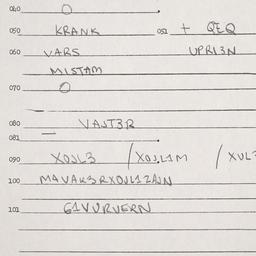 040 O
050 KRANK 052 + QEQ
060 VARS UPRI3N
MISTAM
070 O
080 VAJT3R
081
090 XOJL3 / XOJL1M / XUL3
100 M4VAK3RXOJL1ZAJN
101 G1VURVERN